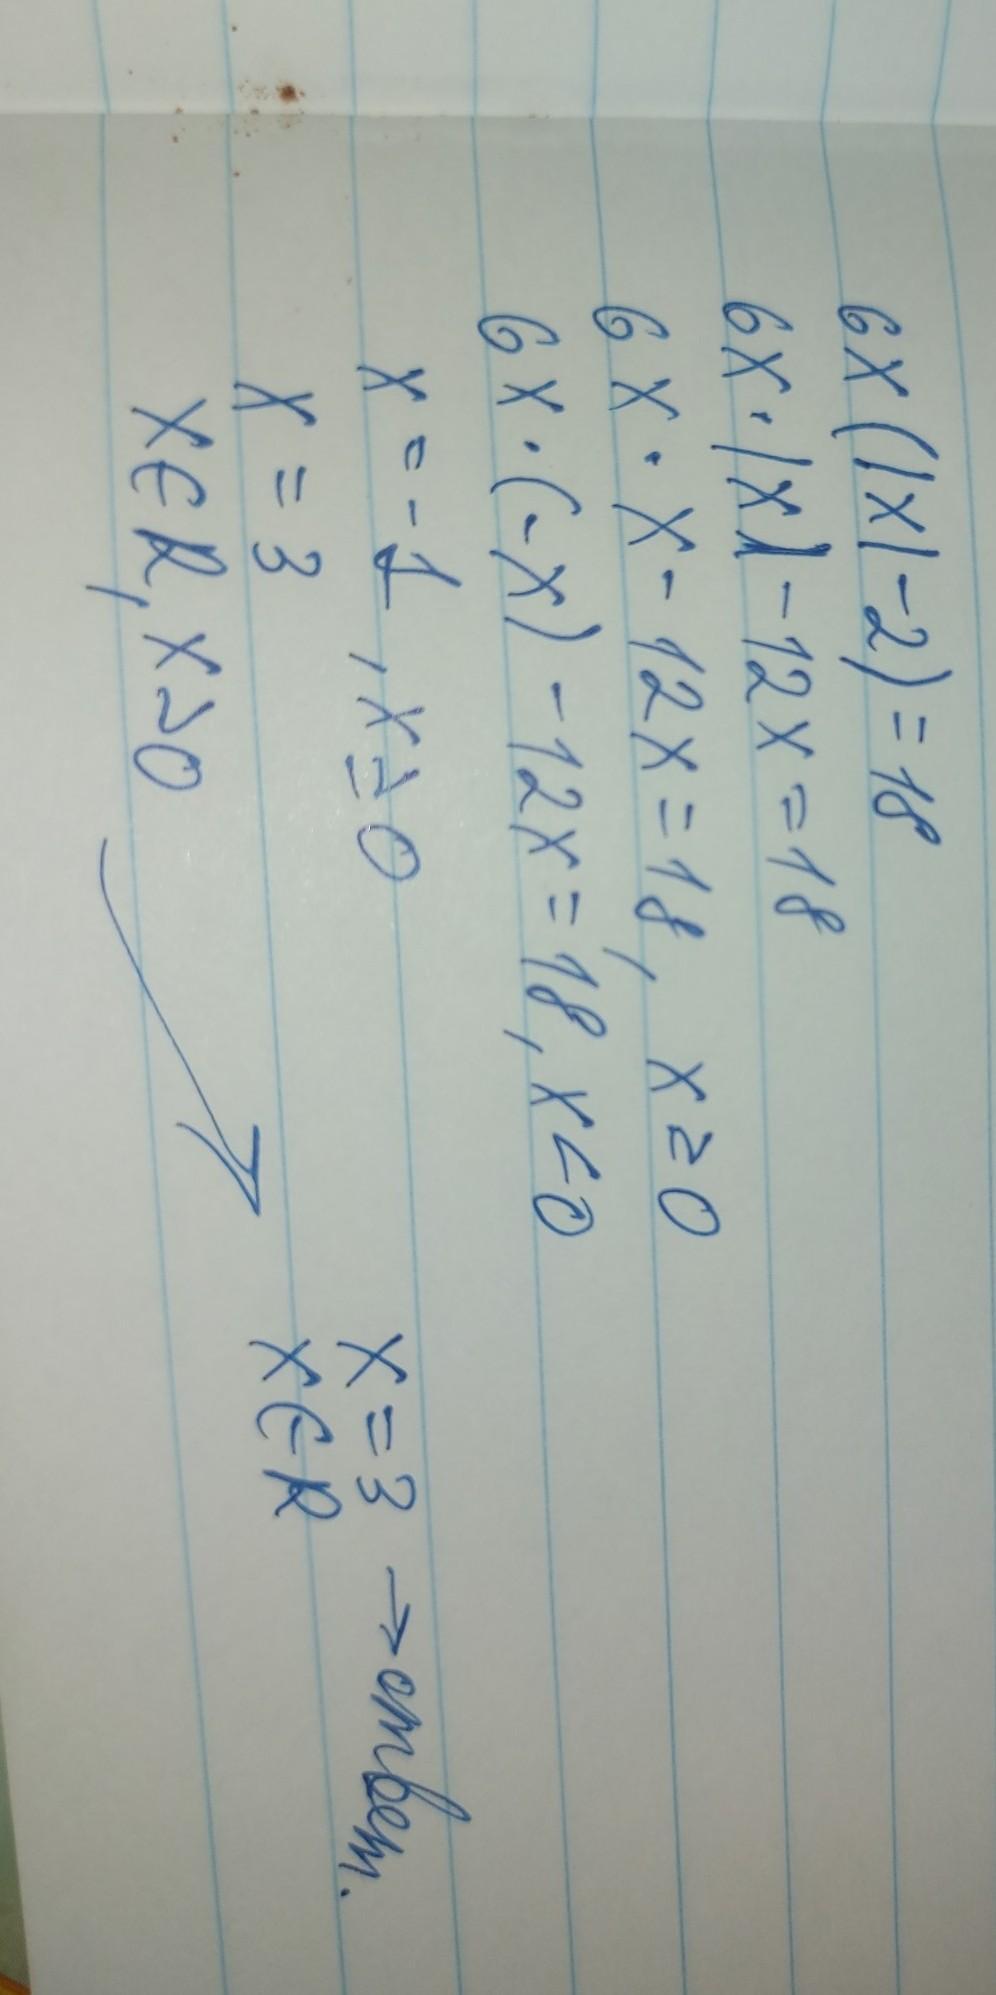 6x(|x|-2)=18
6x·|x|-12x=18
6x·x-12x=18, x≥0
6x·(-x)-12x=18, x<0
x=-1, x≥0
x=3
x∈R, x>0
x=3 → ответ.
x∈R